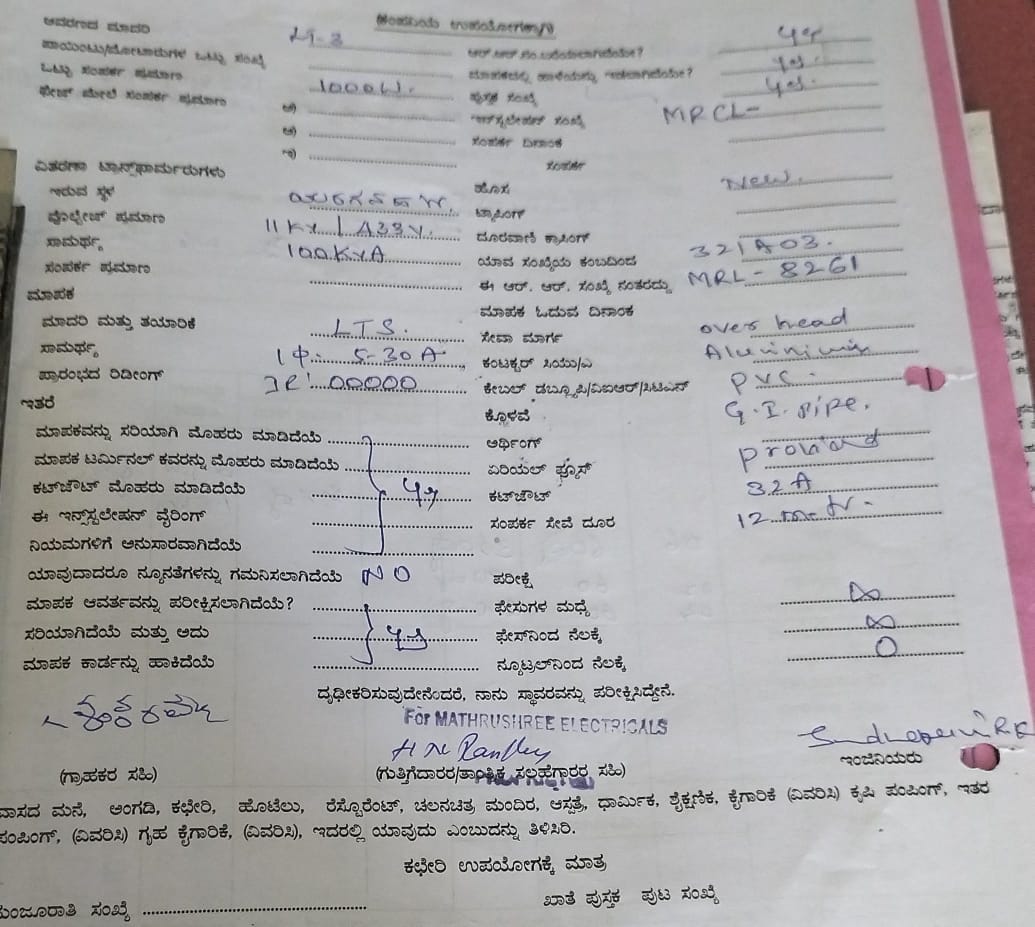 ಆವರಣದ ಮಾದರಿ LT-3 Yes
ಒಟ್ಟು ಸಂಖ್ಯೆ Yes.
ಒಟ್ಟು ಸಂಪರ್ಕ ಪ್ರಮಾಣ 1000W. ಪುಸ್ತಕ ಸಂಖ್ಯೆ Yes.
ಫೇಸ್ ಮೇಲೆ ಸಂಪರ್ಕ ಪ್ರಮಾಣ ಅ) ಇನ್‌ಸ್ಟಲೇಷನ್ ಸಂಖ್ಯೆ MRCL-
ಆ) ಸಂಪರ್ಕ ದಿನಾಂಕ
ಇ) ಸಂಪರ್ಕ
ವಿತರಣಾ ಟ್ರಾನ್ಸ್‌ಫಾರ್ಮರುಗಳು
ಇರುವ ಸ್ಥಳ ಹೊಸ New.
ವೊಲ್ಟೇಜ್ ಪ್ರಮಾಣ 11 KV / 433 V. ಟ್ಯಾಪಿಂಗ್
ಸಾಮರ್ಥ್ಯ 100 KVA ದೂರವಾಣಿ ಕ್ರಾಸಿಂಗ್
ಸಂಪರ್ಕ ಪ್ರಮಾಣ ಯಾವ ಸಂಖ್ಯೆಯ ಕಂಬದಿಂದ
ಈ ಆರ್. ಆರ್. ಸಂಖ್ಯೆ ನಂತರದ್ದು MRL - 8261
ಮಾಪಕ ಮಾಪಕ ಓದುವ ದಿನಾಂಕ
ಮಾದರಿ ಮತ್ತು ತಯಾರಿಕೆ LTS. ಸೇವಾ ಮಾರ್ಗ over head
ಸಾಮರ್ಥ್ಯ 1 φ. 5-30 A ಕಂಟಕ್ಟರ್ ಸಿಯು/ಎ Aluminium
ಪ್ರಾರಂಭದ ರಿಡೀಂಗ್ IR' 00000 ಕೇಬಲ್ ಡಬ್ಲ್ಯೂಪಿ/ವಿಐಆರ್/ಸಿಟಿಎಸ್ PVC.
ಇತರೆ ಕ್ಕೊಳವೆ G.I. pipe.
ಮಾಪಕವನ್ನು ಸರಿಯಾಗಿ ಮೊಹರು ಮಾಡಿದೆಯೆ ಅರ್ಥಿಂಗ್ Provided
ಮಾಪಕ ಟರ್ಮಿನಲ್ ಕವರನ್ನು ಮೊಹರು ಮಾಡಿದೆಯೆ ಏರಿಯಲ್ ಫ್ಯೂಸ್
ಕಟ್‌ಔಟ್ ಮೊಹರು ಮಾಡಿದೆಯೆ Yes ಕಟ್‌ಔಟ್ 32 A
ಈ ಇನ್‌ಸ್ಟಲೇಷನ್ ವೈರಿಂಗ್ ಸಂಪರ್ಕ ಸೇವೆ ದೂರ 12 mtr.
ನಿಯಮಗಳಿಗೆ ಅನುಸಾರವಾಗಿದೆಯೆ
ಯಾವುದಾದರೂ ನ್ಯೂನತೆಗಳನ್ನು ಗಮನಿಸಲಾಗಿದೆಯೆ NO ಪರೀಕ್ಷೆ
ಮಾಪಕ ಆವರ್ತವನ್ನು ಪರೀಕ್ಷಿಸಲಾಗಿದೆಯೆ? ಫೇಸುಗಳ ಮಧ್ಯೆ ∞
ಸರಿಯಾಗಿದೆಯೆ ಮತ್ತು ಅದು Yes ಫೇಸ್‌ನಿಂದ ನೆಲಕ್ಕೆ ∞
ಮಾಪಕ ಕಾರ್ಡನ್ನು ಹಾಕಿದೆಯೆ ನ್ಯೂಟ್ರಲ್‌ನಿಂದ ನೆಲಕ್ಕೆ 0
ದೃಢೀಕರಿಸುವುದೇನೆಂದರೆ, ನಾನು ಸ್ಥಾವರವನ್ನು ಪರೀಕ್ಷಿಸಿದ್ದೇನೆ.
For MATHRUSHREE ELECTRICALS
(ಗ್ರಾಹಕರ ಸಹಿ) (ಗುತ್ತಿಗೆದಾರರ/ತಾಂತ್ರಿಕ ಸಲಹೆಗಾರರ ಸಹಿ) ಇಂಜಿನಿಯರು
ವಾಸದ ಮನೆ, ಅಂಗಡಿ, ಕಛೇರಿ, ಹೊಟೆಲು, ರೆಸ್ಟೊರೆಂಟ್, ಚಲನಚಿತ್ರ ಮಂದಿರ, ಆಸ್ಪತ್ರೆ, ಧಾರ್ಮಿಕ, ಶೈಕ್ಷಣಿಕ, ಕೈಗಾರಿಕೆ (ವಿವರಿಸಿ) ಕೃಷಿ ಪಂಪಿಂಗ್, ಇತರ
ಪಂಪಿಂಗ್, (ವಿವರಿಸಿ) ಗೃಹ ಕೈಗಾರಿಕೆ, (ವಿವರಿಸಿ), ಇದರಲ್ಲಿ ಯಾವುದು ಎಂಬುದನ್ನು ತಿಳಿಸಿರಿ.
ಕಛೇರಿ ಉಪಯೋಗಕ್ಕೆ ಮಾತ್ರ
ಮಂಜೂರಾತಿ ಸಂಖ್ಯೆ ಖಾತೆ ಪುಸ್ತಕ ಪುಟ ಸಂಖ್ಯೆ